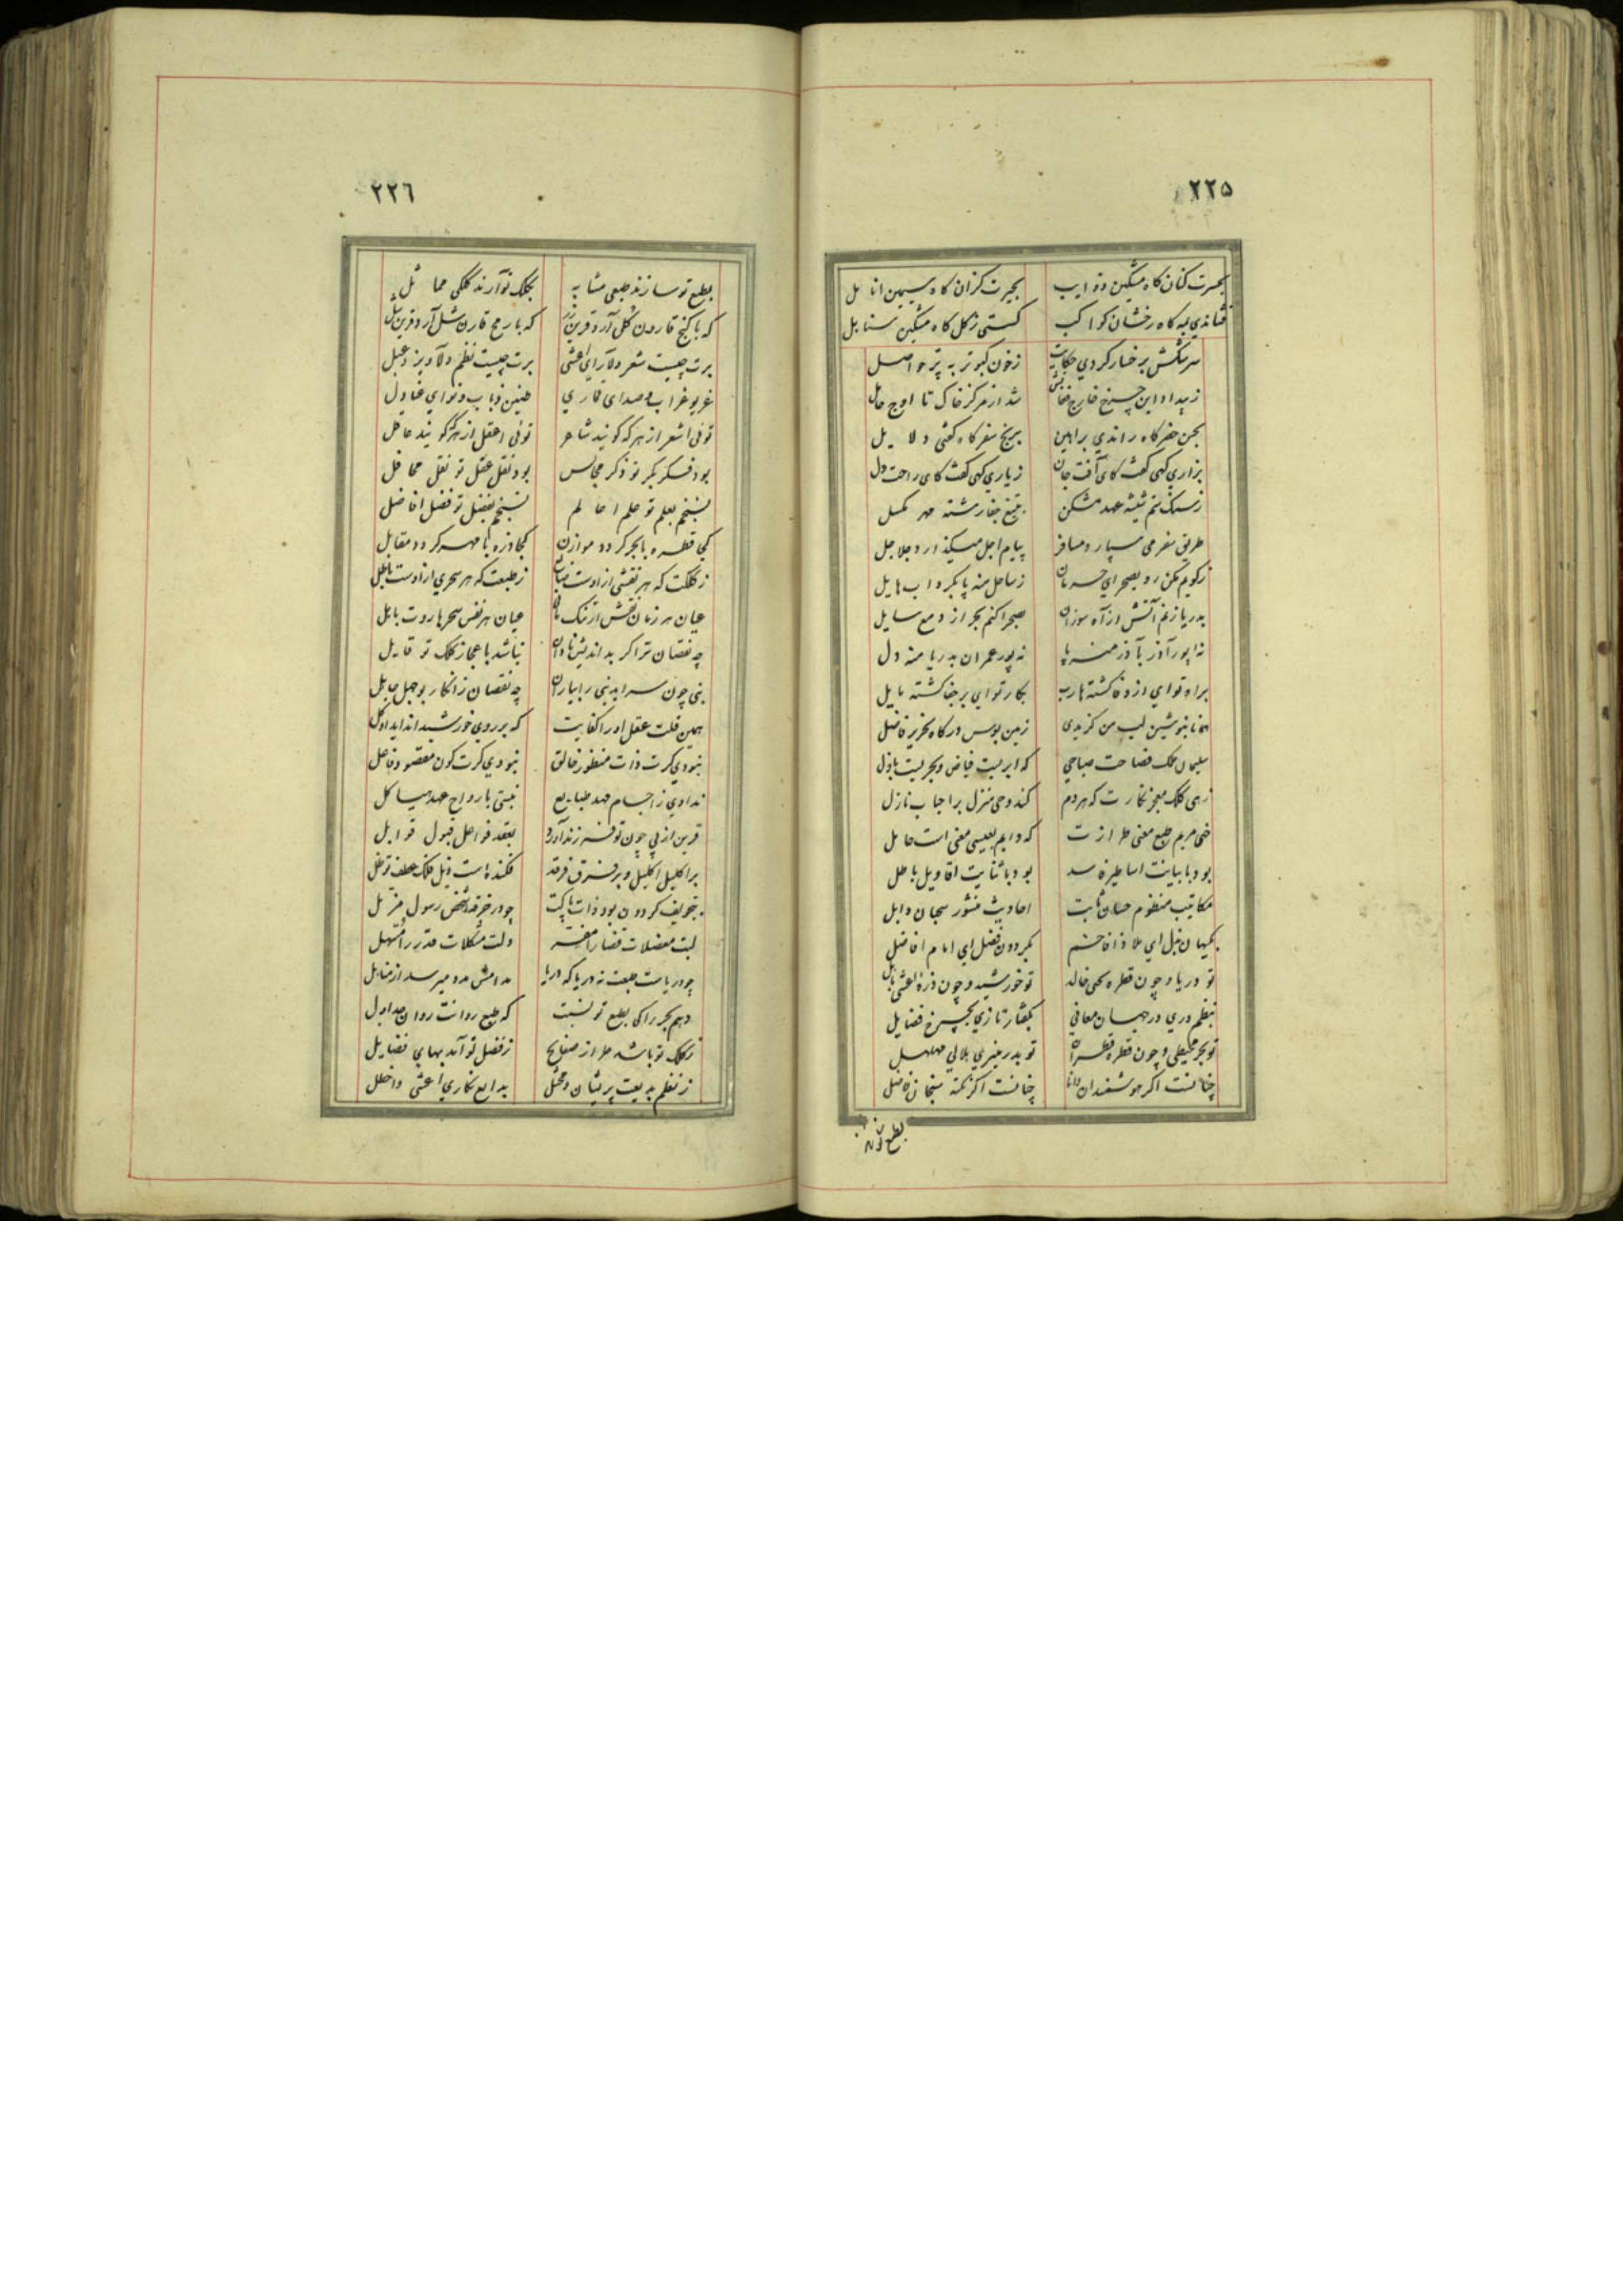 ٢٢٥
بحسرت کنان کاه مشکین ذوایب بحیرت کزان کاه سیمین انامل
فشاندی به کاه رخشان کواکب کستی ز کل کاه مشکین سنابل
سرشکش برخسار کردی حکایت ز خون کبوتر به پر حواصل
ز بیداد این چرخ خارج شد از مرکز خاک تا اوج حامل
بحن حضر کاه راندی براهین برنج سفر کاه کفتی دلایل
بزاری کهی کفت کای آفت جان ز یاری کهی کفت کای راحت دل
ز سنک ستم شیشه عهد مشکن بتیغ جفا رشته مهر مکسل
طریق سفر می سپارد مسافر پیام اجل میکذارد جلاجل
ز کویم مکن رو بصحرای حرمان ز ساحل منه پا بکرداب هایل
بدریا زنم آتش از آه سوزان بصحرا کنم بحر از دمع سایل
نه پور آذر بآذر منه پا نه پور عمران بدریا منه دل
براه تو ای از وفا کشته هارب بکار تو ای بر جفا کشته مایل
همانا بنوشین لب من کزیدی زمین بوس درکاه نحریر فاضل
سلیمان ملک فصاحت صباحی که ابریست فیاض و بحریست باذل
زهی کلک معجز نکارت که هر دم کند وحی منزل براحباب نازل
خهی مریم طبع معنی طرازت که دایم بعیسی معنی است حامل
بود با بیانت اساطیر فاسد بود با ثنایت اقاویل باطل
مکاتیب منظوم حسان ثابت احادیث منثور سحبان وایل
بکیهان بذل ای ملاذ افاخم بکردون فضل ای امام افاضل
تو دریا و چون قطره یحیی خالد تو خورشید و چون ذره اعشی باهل
بنظم دری در جهان معانی بکفتار تازی بچرخ فضایل
تو بحر محیطی و چون قطره قطران تو بدر منیری هلالی مهلهل
چنانست اکر هوشمندان دانا چنانست اکر نکته سنجان فاضل
بطبع تو
٢٢٦
بطبع تو سازند طبعی مشابه بکلک تو آرند کلکی مماثل
که با کنج قارون کل آرد قرین زر که با رمح قارن شل آرد قرین شل
برت چیست شعر دلارای اعشی برت چیست نظم دلاویز دعبل
غریو غراب و صدای قماری طنین ذباب و نوای عنادل
توئی اشعر از هر که کویند شاعر توئی اعقل از هر که کویند عاقل
بود فکر بکر تو ذکر مجالس بود نقل عقل تو نقل محافل
نسنجم بعلم تو علم اعالم نسنجم بفضل تو فضل افاضل
کجا قطره با بحر کردد موازن کجا ذره با مهر کردد مقابل
ز کلکت که هر نقشی از اوست ز طبعت که هر سحری از اوست باطل
عیان هر زمان نقش ارتنک مانی عیان هر نفس سحر هاروت بابل
چه نقصان ترا کر بد اندیش نادان نباشد باعجاز کلک تو قایل
نبی چون سراید نبی را بیاران چه نقصان ز انکار بوجهل جاهل
همین قلت عقل او را کفایت که بر روی خورشید انداید او کل
نبودی کرت ذات منظور خالق نبودی کرت کون مقصود فاعل
ندادی ز اجسام مهد طبایع نبستی بارواح عهد هیاکل
قرین از پی چون تو فرزند آورد بعقد فواعل قبول قوابل
بر اکلیل اکلیل و بر فرق فرقد فکنده است ذیل فلک عطف تو ظل
بتجویف کردون بود ذات پاکت چو در خرقه شخص رسول مزمل
لبت معضلات قضا را مفسر دلت مشکلات قدر را مسهل
چو دریاست طبعت نه دریا که دریا مدامش مدد میرسد از مناهل
دهم بحر را کی بطبع تو نسبت که طبع روانت روان جداول
ز کلک تو باشد طراز صفایح ز فضل تو آمد بهای فضایل
ز نظم بدیعت پریشان و مختل بدایع نکاری اعشی و اخطل